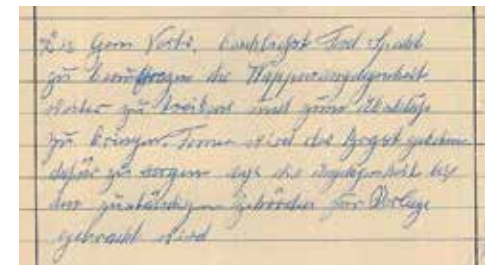 Die Gem Vorst. beschliesst Herrn Spahl
zu beauftragen die Wappenangelegenheit
weiter zu treiben und zum Abschluss
zu bringen. Ferner wird der Vogt gebeten
dafür zu sorgen dass die Angelegenheit bei
den zuständigen Behörden zur Vorlage
gebracht wird